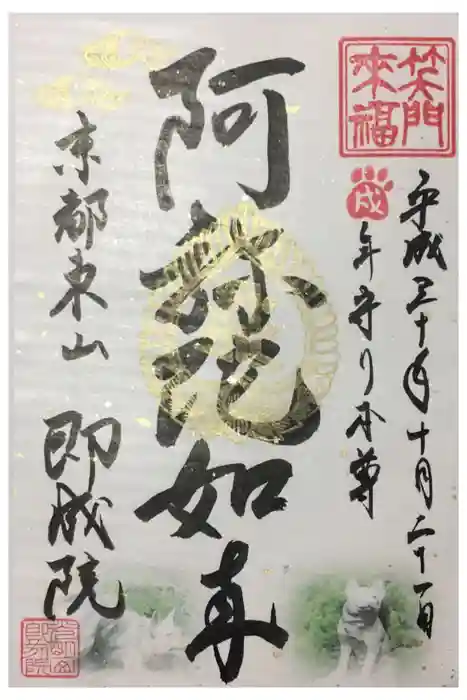 笑門
來福
平成三十年十月二十一日
戌年守り本尊
阿弥陀如来
京都東山 即成院
光明山
即成院